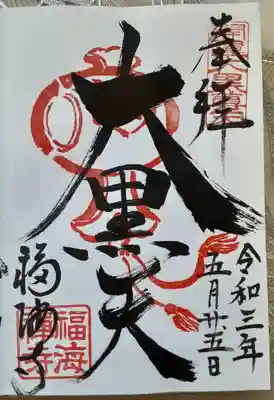 奉拝
令和三年
五月廿五日
大黒天
福海寺
福海
禅寺